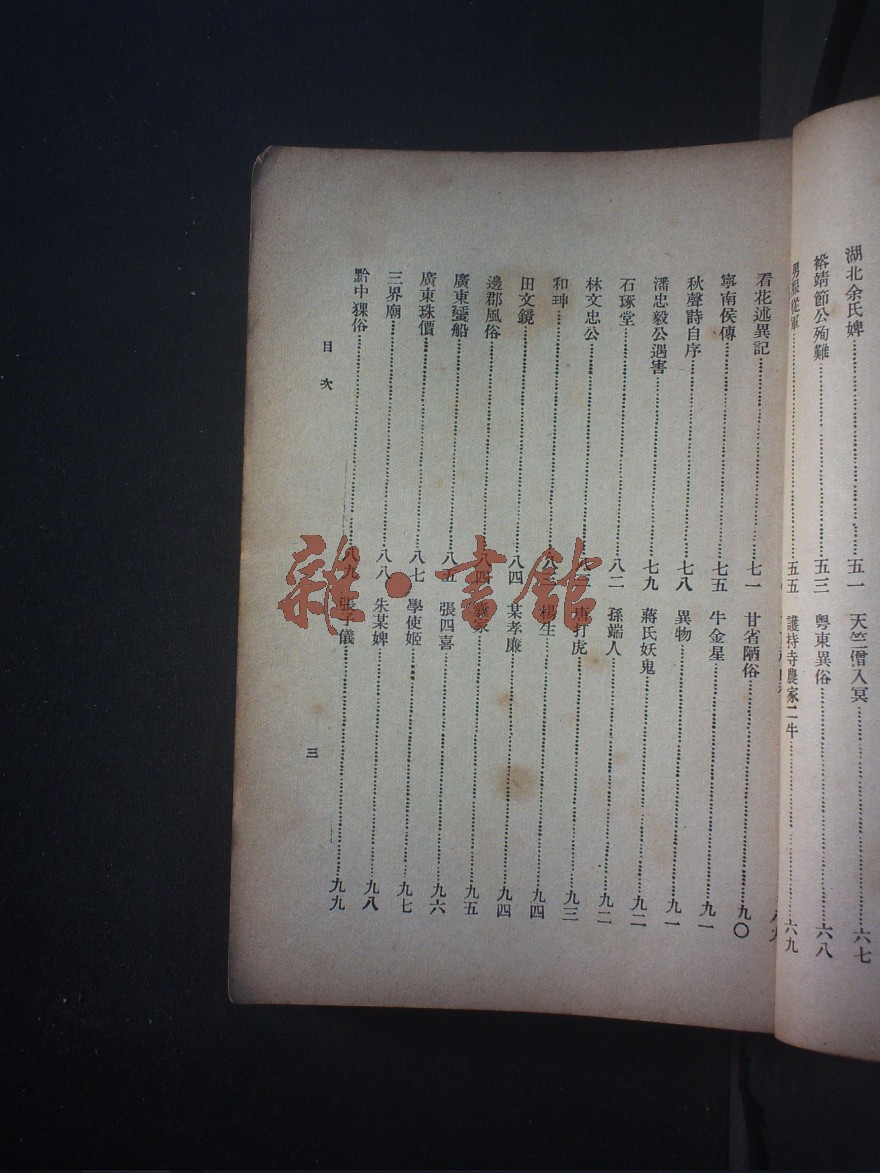 湖北余氏婢……五一 天竺僧入冥……六七
裕靖節公殉難……五三 粤東異俗……六八
男報從軍……五五 護持寺農家二牛……六九
八九
看花述異記……七一 甘省陋俗……九〇
寧南侯傳……七五 牛金星……九一
秋聲詩自序……七八 異物……九一
潘忠毅公遇害……七九 蔣氏妖鬼……九二
石琢堂……八二 孫端人……九二
林文忠公……八三 唐打虎……九三
和珅……八三 楊生……九四
田文鏡……八四 某孝廉……九四
邊郡風俗……八四 義冢……九五
廣東蜑船……八五 張四喜……九六
廣東珠價……八七 學使姬……九七
三界廟……八八 朱某婢……九八
黔中猓俗……八九 張子儀……九九
目次
三
雜·書館